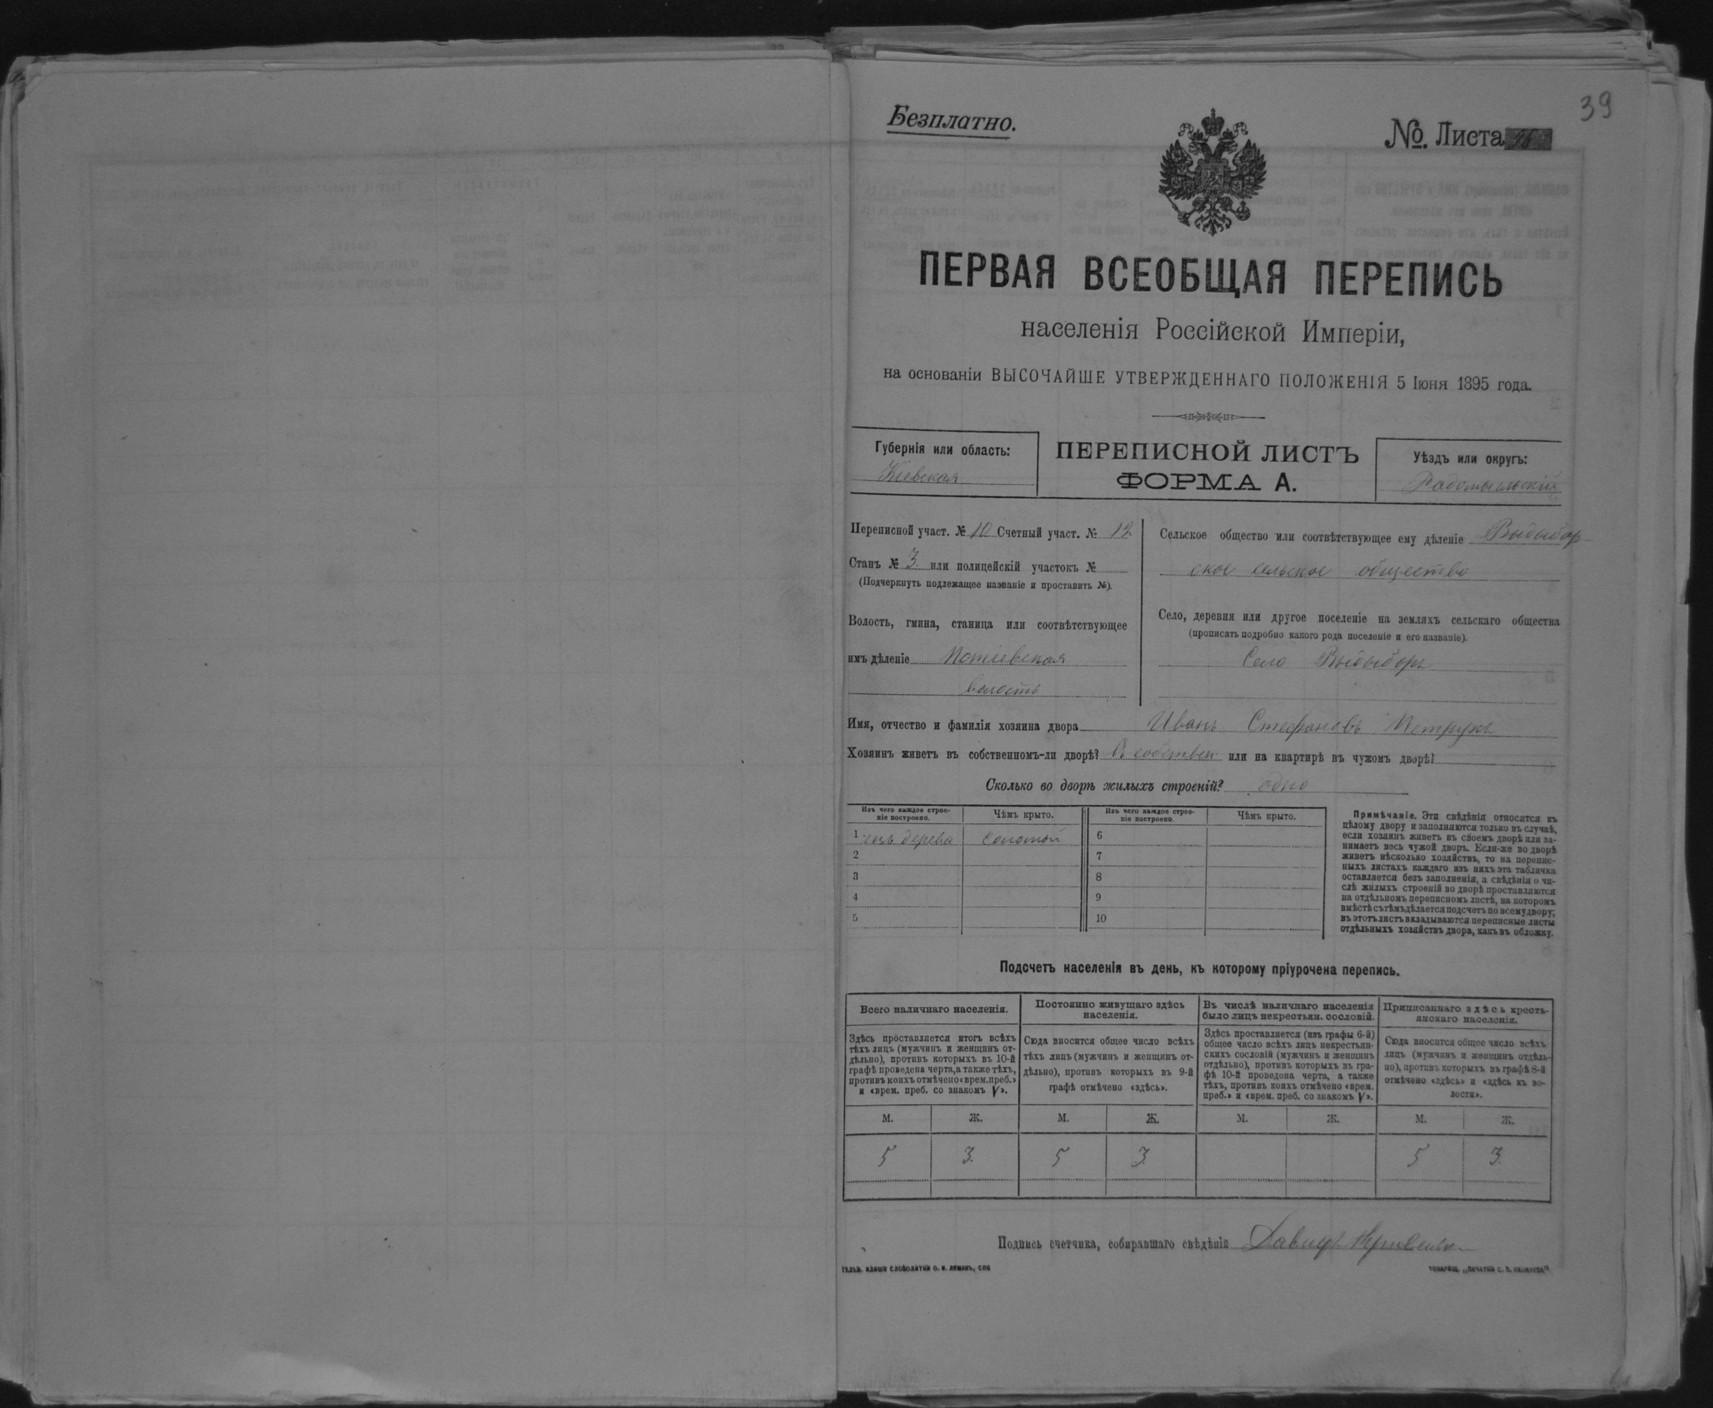 39
Безплатно.
№. Листа
ПЕРВАЯ ВСЕОБЩАЯ ПЕРЕПИСЬ
населенія Россійской Имперіи,
на основаніи ВЫСОЧАЙШЕ УТВЕРЖДЕННАГО ПОЛОЖЕНІЯ 5 Іюня 1895 года.
Губернія или область:
Кіевская
ПЕРЕПИСНОЙ ЛИСТЪ
ФОРМА А.
Уѣздъ или округъ:
Радомысльскій
Переписной участ. № 10 Счетный участ. № 12
Станъ № 3. или полицейскій участокъ №
(Подчеркнуть подлежащее названіе и проставить №).
Волость, гмина, станица или соотвѣтствующее
имъ дѣленіе Потіевская
волость
Сельское общество или соотвѣтствующее ему дѣленіе Выдыбор-
ское сельское общество
Село, деревня или другое поселеніе на земляхъ сельскаго общества
(прописать подробно какого рода поселеніе и его названіе).
Село Выдыборъ
Имя, отчество и фамилія хозяина двора Иванъ Стефановъ Петрукъ
Хозяинъ живетъ въ собственномъ-ли дворѣ? В собствен или на квартирѣ въ чужомъ дворѣ?
Сколько во дворѣ жилыхъ строеній? одно
Изъ чего каждое строе-
ніе построено.
Чѣмъ крыто.
Изъ чего каждое строе-
ніе построено.
Чѣмъ крыто.
1 изъ дерева соломой 6
2 7
3 8
4 9
5 10
Примѣчаніе. Эти свѣдѣнія относятся къ
цѣлому двору и заполняются только въ случаѣ,
если хозяинъ живетъ въ своемъ дворѣ или за-
нимаетъ весь чужой дворъ. Если-же во дворѣ
живетъ нѣсколько хозяйствъ, то на перепис-
ныхъ листахъ каждаго изъ нихъ эта табличка
оставляется безъ заполненія, а свѣдѣнія о чи-
слѣ жилыхъ строеній во дворѣ проставляются
на отдѣльномъ переписномъ листѣ, на которомъ
вмѣстѣ съ тѣмъ дѣлается подсчетъ по всему двору;
въ этотъ листъ вкладываются переписные листы
отдѣльныхъ хозяйствъ двора, какъ въ обложку.
Подсчетъ населенія въ день, къ которому пріурочена перепись.
Всего наличнаго населенія.
Здѣсь проставляется итогъ всѣхъ
тѣхъ лицъ (мужчинъ и женщинъ от-
дѣльно), противъ которыхъ въ 10-й
графѣ проведена черта, а также тѣхъ,
противъ коихъ отмѣчено «врем. преб.»
и «врем. преб. со знакомъ V».
Постоянно живущаго здѣсь
населенія.
Сюда вносится общее число всѣхъ
тѣхъ лицъ (мужчинъ и женщинъ от-
дѣльно), противъ которыхъ въ 9-й
графѣ отмѣчено «здѣсь».
Въ числѣ наличнаго населенія
было лицъ некрестьян. сословій.
Здѣсь проставляется (изъ графы 6-й)
общее число всѣхъ лицъ некрестьян-
скихъ сословій (мужчинъ и женщинъ
отдѣльно), противъ которыхъ въ гра-
фѣ 10-й проведена черта, а также
тѣхъ, противъ коихъ отмѣчено «врем.
преб.» и «врем. преб. со знакомъ V».
Приписаннаго здѣсь кресть-
янскаго населенія.
Сюда вносится общее число всѣхъ
лицъ (мужчинъ и женщинъ отдѣль-
но), противъ которыхъ въ графѣ 8-й
отмѣчено «здѣсь» и «здѣсь къ во-
лости».
М. Ж. М. Ж. М. Ж. М. Ж.
5 3. 5 3 5 3.
Подпись счетчика, собиравшаго свѣдѣнія Давидъ